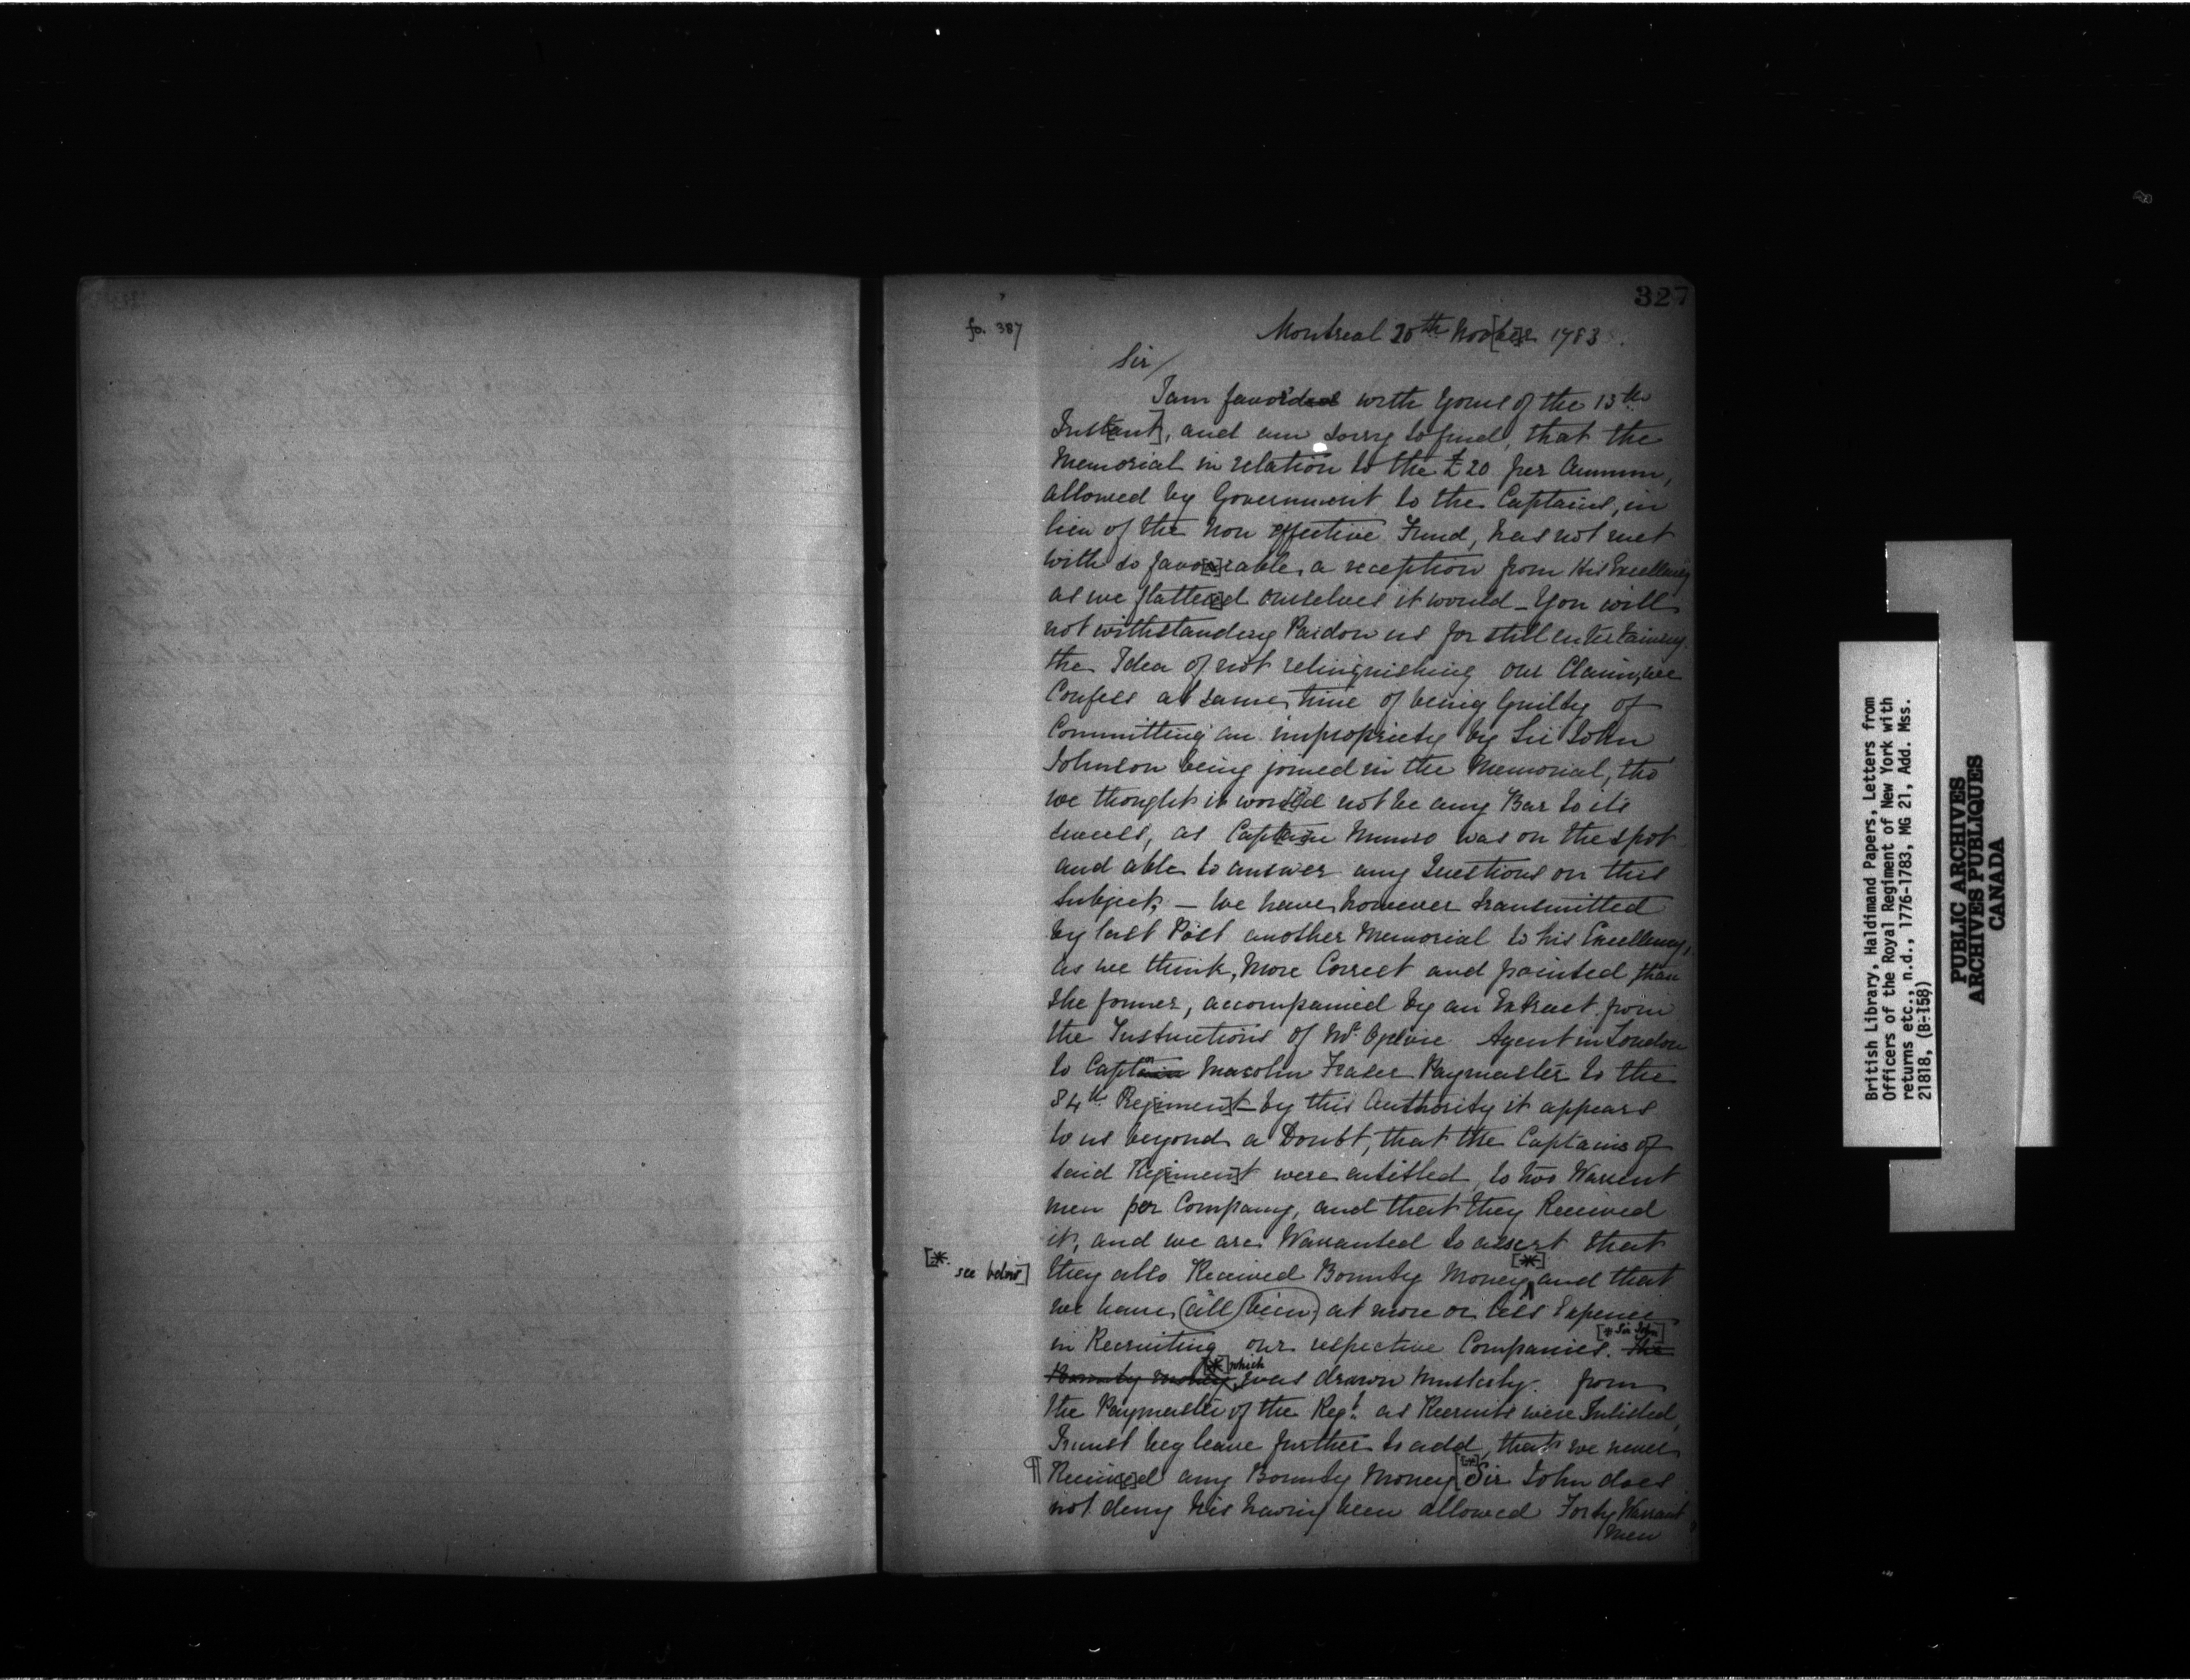 327
fo. 387
Montreal 20th Nov[be]r 1783.
Sir/
I am favor'd with Yours of the 13th
Inst[ant], and am sorry to find, that the
Memorial in relation to the £20 per Annum,
allowed by Government to the Captains, in
lieu of the Non effective Fund, has not met
with so favo[u]rable a reception from His Excellency
as we flatter[e]d ourselves it would _ You will
notwithstanding Pardon us for still entertaining
the Idea of not relinquishing our Claim, we
Confess at same time of being Guilty of
Committing an impropriety by Sir John
Johnson being joined in the Memorial, tho'
we thought it wo[ul]d not be any Bar to its
success, as Capt[ai]n Munro was on the spot
and able to answer any Questions on this
Subject, — We have however transmitted
by last Post another Memorial to his Excellency,
as we think, More Correct and pointed than
the former, accompanied by an Extract from
the Instructions of Mr. Agent in London
to Captn Macolm Fraser Paymaster to the
84th Reg[imen]t by this Authority it appears
to us beyond a Doubt, that the Captains of
said Reg[imen]t were entitled to two Warrent
men per Company, and that they Received
it, and we are Warranted to assert that
[* see below] they also Received Bounty Money [*] and that
we have all been at more or less Expence
in Recruiting our respective Companies. [* Sir John] The
Bounty money [*] which was drawn from
the Paymaster of the Regt. as Recruits were Inlisted,
I must beg leave further to add, that we never
¶ Receiv[e]d any Bounty Money [Sir John does
not deny his having been allowed Forty Warrant
men
British Library, Haldimand Papers, Letters from
Officers of the Royal Regiment of New York with
returns etc., n.d., 1776-1783, MG 21, Add. Mss.
21818, (B-158)
PUBLIC ARCHIVES
ARCHIVES PUBLIQUES
CANADA